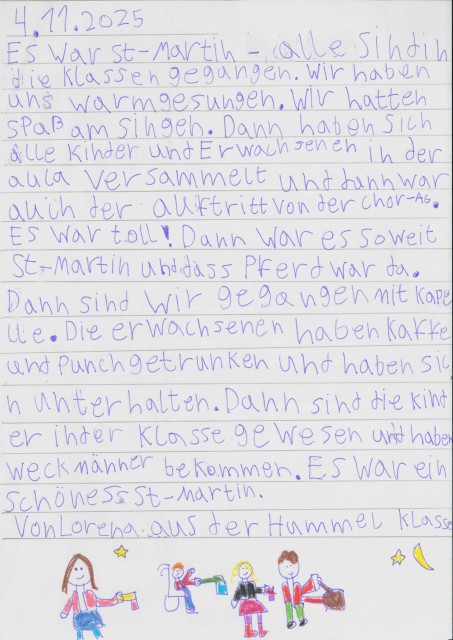 4.11.2025
Es war St-Martin - alle sind in
die Klassen gegangen. Wir haben
uns warmgesungen. Wir hatten
spaß am singen. Dann haben sich
alle Kinder und Erwachsenen in der
aula versammelt und dann war
auch der auftritt von der chor-AG.
Es war toll! Dann war es soweit
St-Martin und dass Pferd war da.
Dann sind wir gegangen mit Kape
lle. Die erwachsenen haben Kaffe
und Punch getrunken und haben sic
h unterhalten. Dann sind die kind
er in der Klasse gewesen und haben
weckmänner bekommen. Es war ein
schöness St-Martin.
Von Lorena. aus der Hummel Klasse